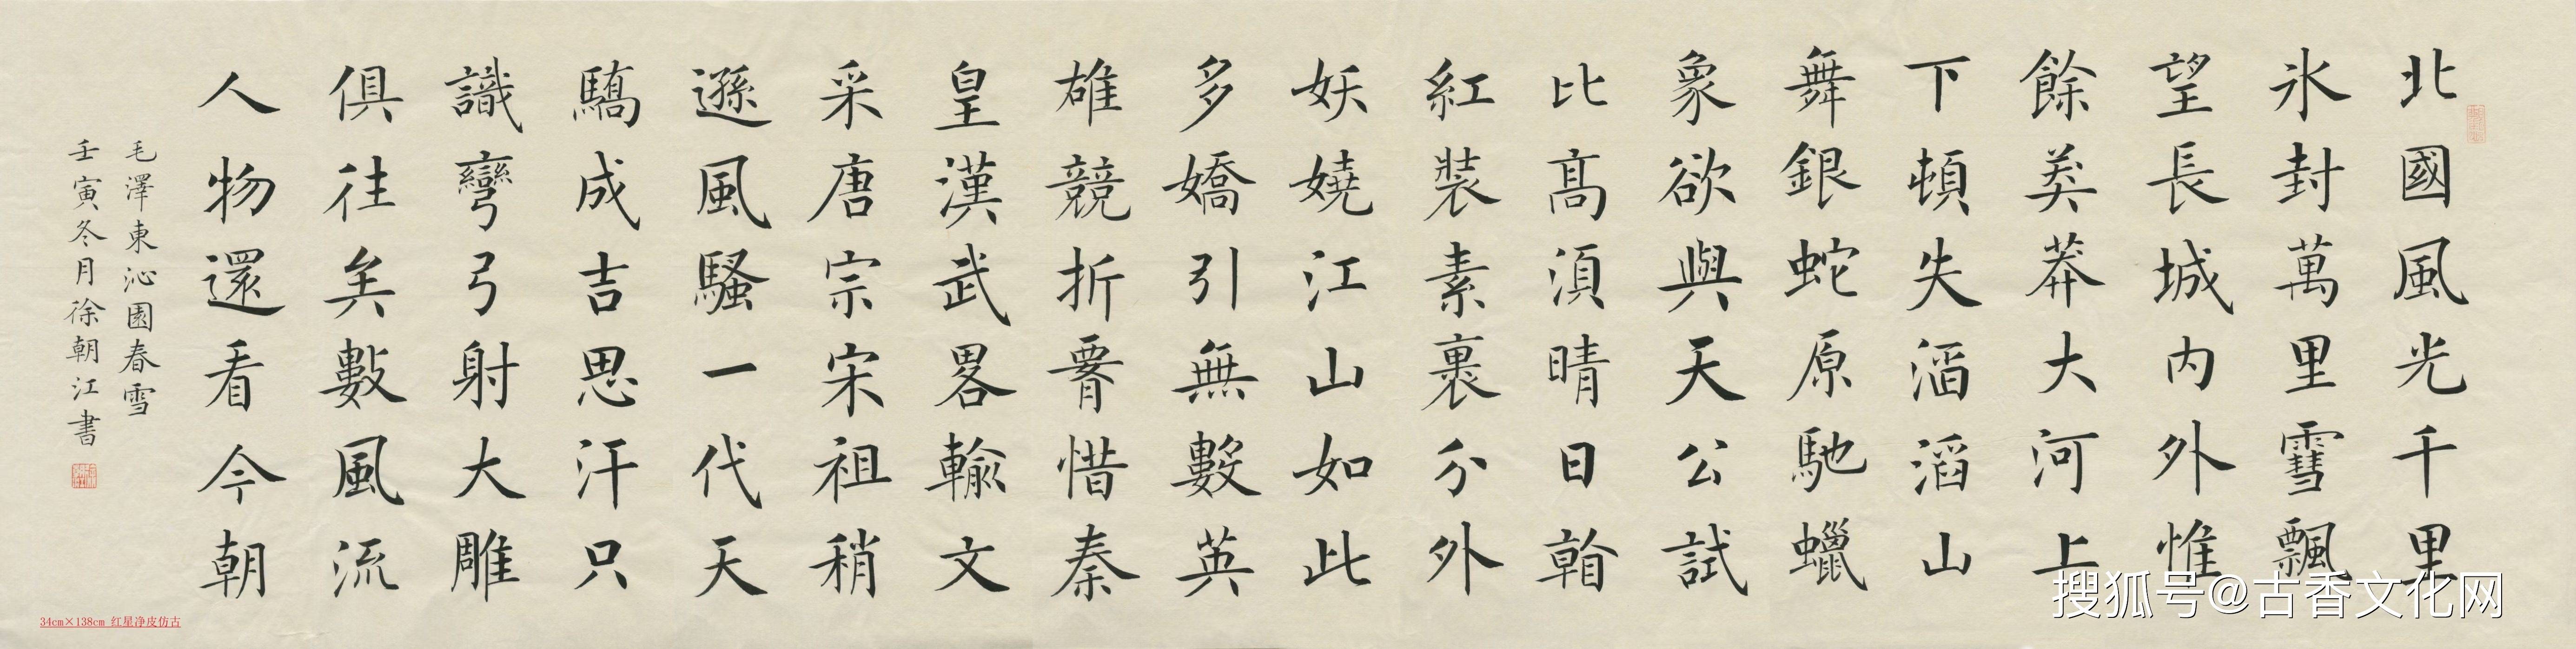 北國風光千里
氷封萬里雪飄
望長城内外惟
餘莽莽大河上
下頓失滔滔山
舞銀蛇原馳蠟
象欲與天公試
比髙須晴日看
紅裝素裹分外
妖嬈江山如此
多嬌引無數英
雄競折腰惜秦
皇漢武畧輸文
采唐宗宋祖稍
遜風騷一代天
驕成吉思汗只
識彎弓射大雕
俱往矣數風流
人物還看今朝
毛澤東沁園春雪
壬寅冬月徐朝江書
34cm×138cm 红星净皮仿古
搜狐号@古香文化网